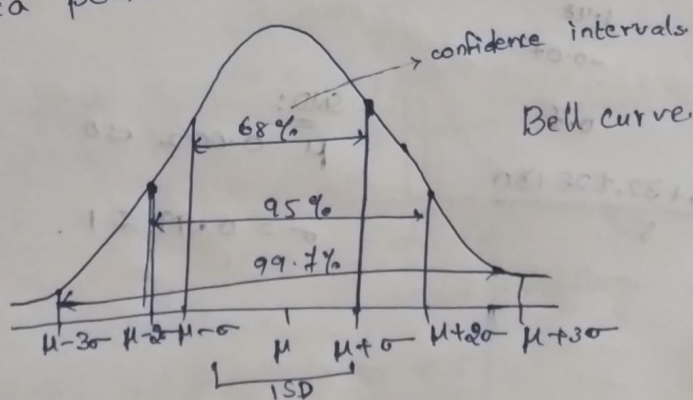 confidence intervals
Bell curve
68%
95%
99.7%
μ-3σ μ-2σ μ-σ μ μ+σ μ+2σ μ+3σ
1SD